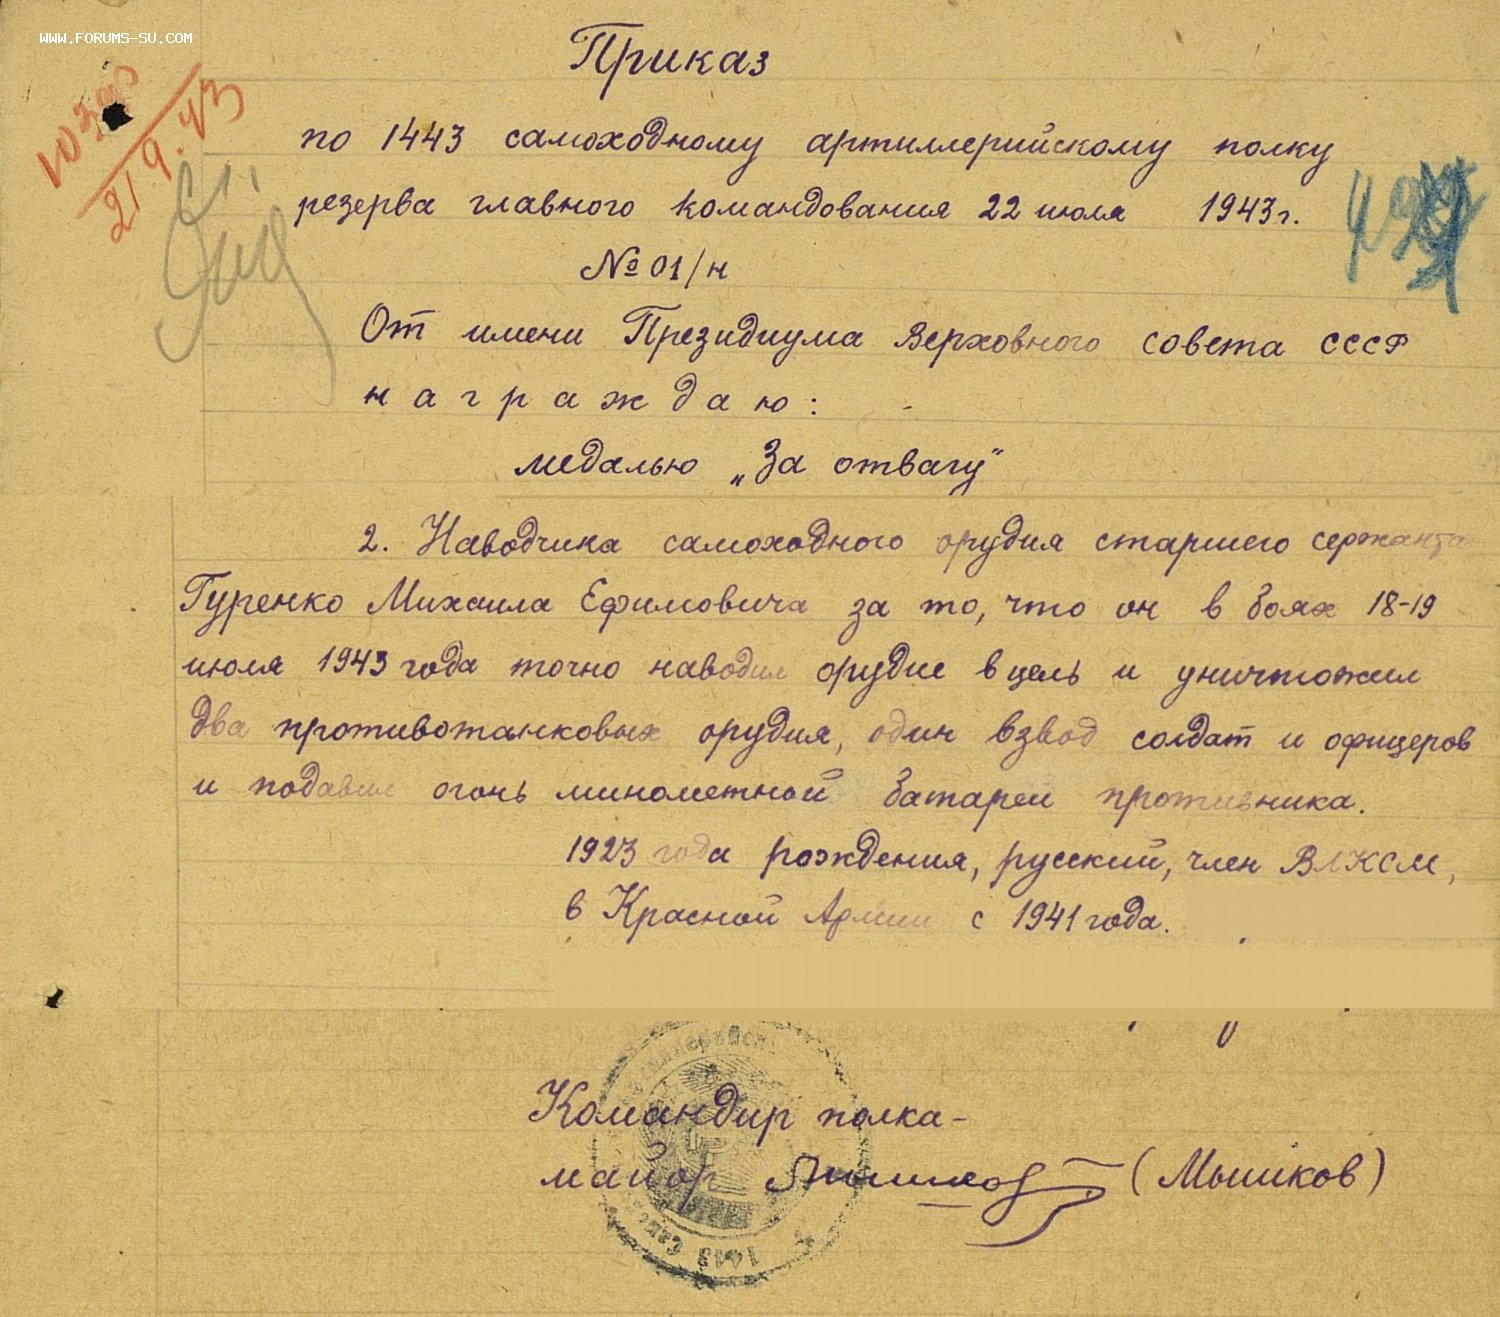 WWW.FORUMS-SU.COM
Приказ
по 1443 самоходному артиллерийскому полку
резерва главного командования 22 июля 1943г.
№ 01/н
От имени Президиума Верховного совета СССР
награждаю:
медалью „За отвагу“
2. Наводчика самоходного орудия старшего сержанта
Гуренко Михаила Ефимовича за то, что он в боях 18-19
июля 1943 года точно наводил орудие в цель и уничтожил
два противотанковых орудия, один взвод солдат и офицеров
и подавил огонь минометной батареи противника.
1923 года рождения, русский, член ВЛКСМ,
в Красной Армии с 1941 года.
Командир полка-
майор (Мышков)
21.9.43
1443